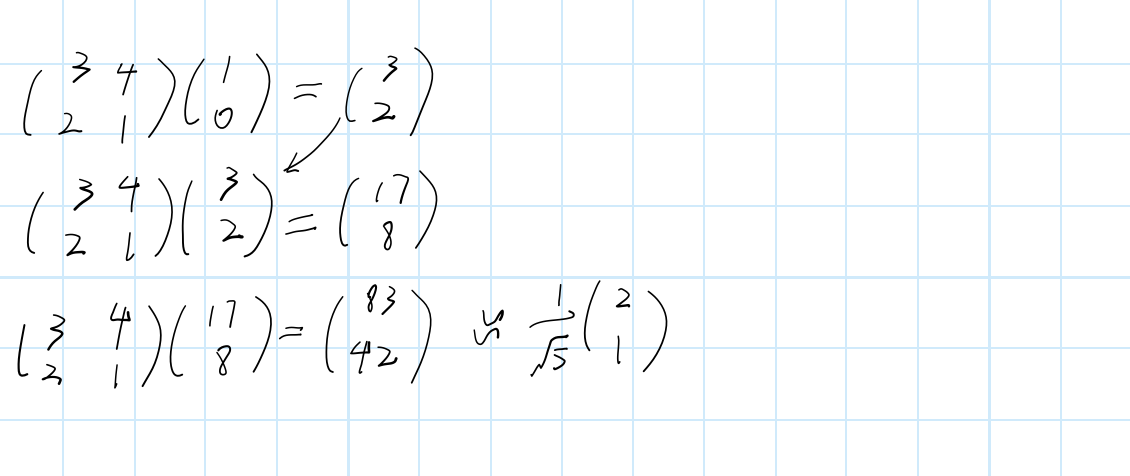 (3 4 2 1)(1 0) = (3 2)
(3 4 2 1)(3 2) = (17 8)
(3 4 2 1)(17 8) = (83 42) ≈ 1/√5 (2 1)